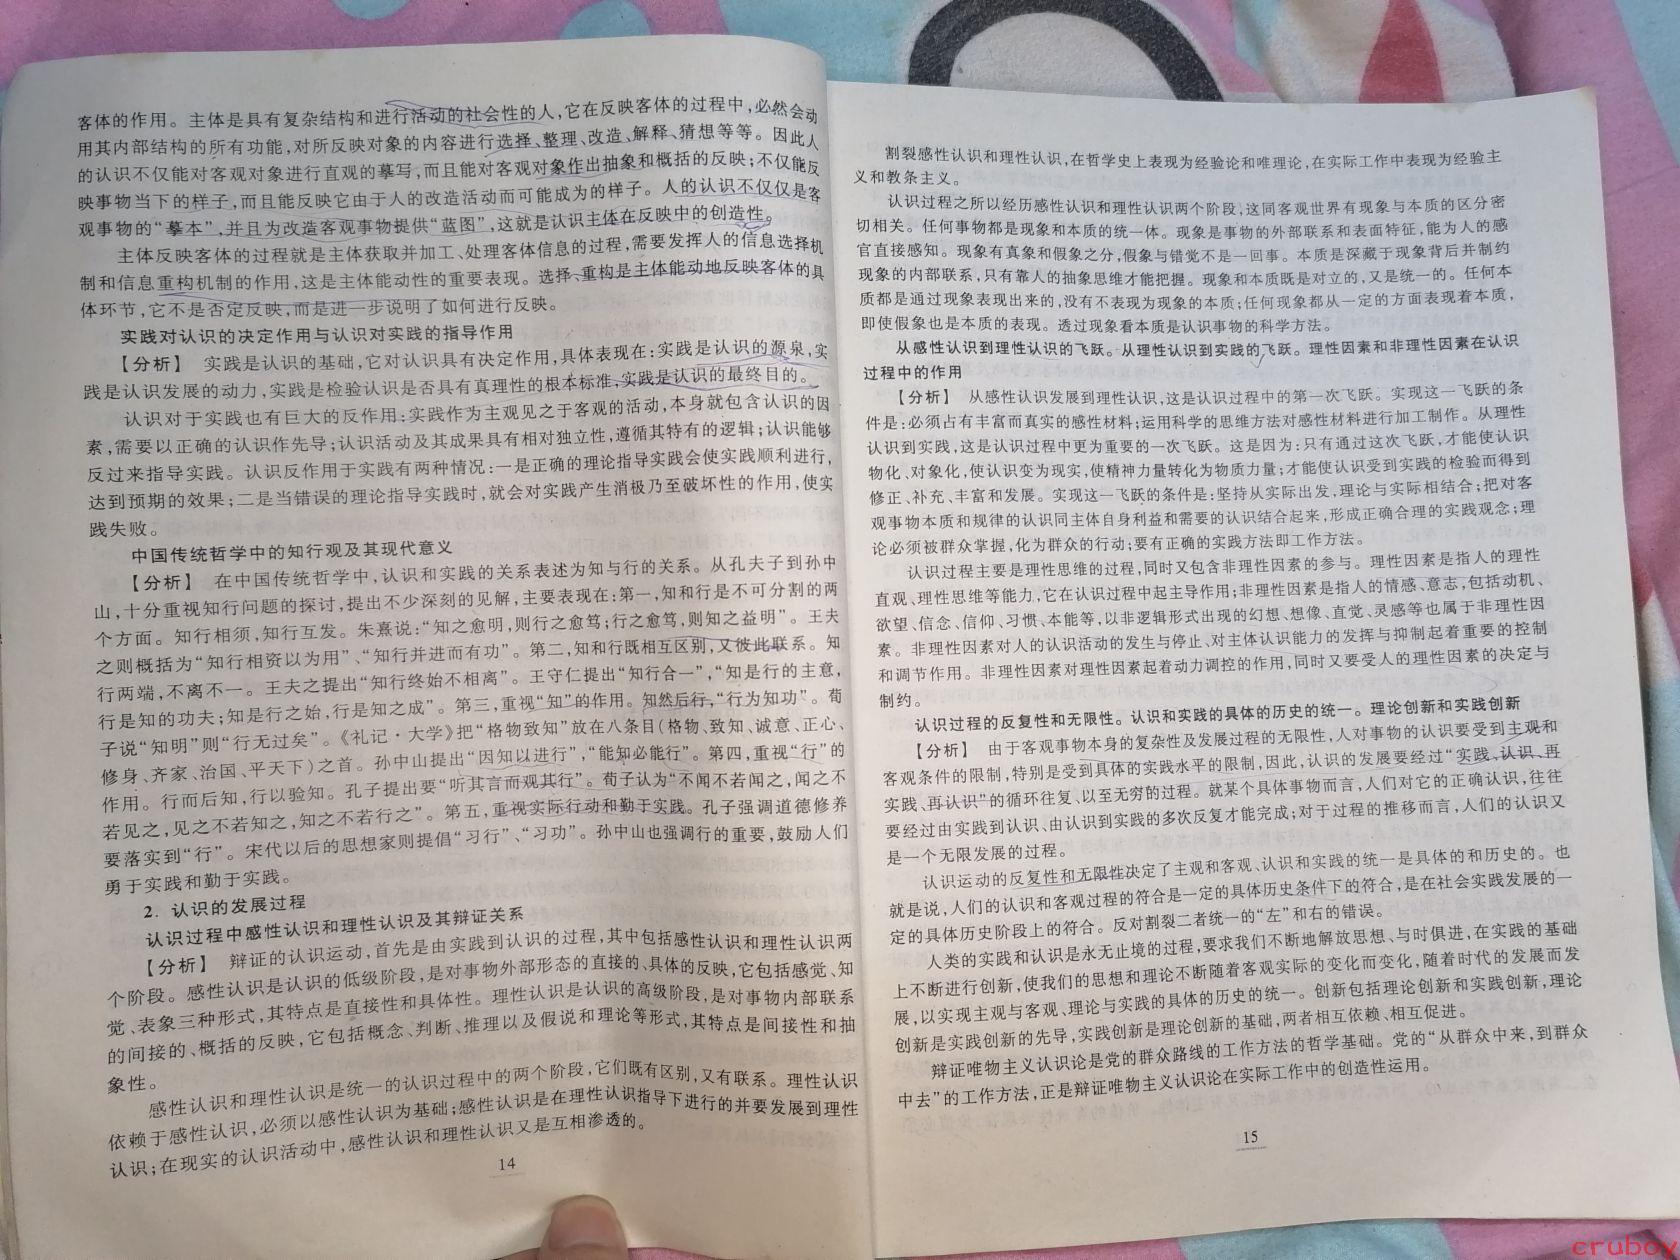 客体的作用。主体是具有复杂结构和进行活动的社会性的人,它在反映客体的过程中,必然会动
用其内部结构的所有功能,对所反映对象的内容进行选择、整理、改造、解释、猜想等等。因此人
的认识不仅能对客观对象进行直观的摹写,而且能对客观对象作出抽象和概括的反映;不仅能反
映事物当下的样子,而且能反映它由于人的改造活动而可能成为的样子。人的认识不仅仅是客
观事物的“摹本”,并且为改造客观事物提供“蓝图”,这就是认识主体在反映中的创造性。
主体反映客体的过程就是主体获取并加工、处理客体信息的过程,需要发挥人的信息选择机
制和信息重构机制的作用,这是主体能动性的重要表现。选择、重构是主体能动地反映客体的具
体环节,它不是否定反映,而是进一步说明了如何进行反映。
实践对认识的决定作用与认识对实践的指导作用
【分析】 实践是认识的基础,它对认识具有决定作用,具体表现在:实践是认识的源泉,实
践是认识发展的动力,实践是检验认识是否具有真理性的根本标准,实践是认识的最终目的。
认识对于实践也有巨大的反作用:实践作为主观见之于客观的活动,本身就包含认识的因
素,需要以正确的认识作先导;认识活动及其成果具有相对独立性,遵循其特有的逻辑;认识能够
反过来指导实践。认识反作用于实践有两种情况:一是正确的理论指导实践会使实践顺利进行,
达到预期的效果;二是当错误的理论指导实践时,就会对实践产生消极乃至破坏性的作用,使实
践失败。
中国传统哲学中的知行观及其现代意义
【分析】 在中国传统哲学中,认识和实践的关系表述为知与行的关系。从孔夫子到孙中
山,十分重视知行问题的探讨,提出不少深刻的见解,主要表现在:第一,知和行是不可分割的两
个方面。知行相须,知行互发。朱熹说:“知之愈明,则行之愈笃;行之愈笃,则知之益明”。王夫
之则概括为“知行相资以为用”、“知行并进而有功”。第二,知和行既相互区别,又彼此联系。知
行两端,不离不一。王夫之提出“知行终始不相离”。王守仁提出“知行合一”,“知是行的主意,
行是知的功夫;知是行之始,行是知之成”。第三,重视“知”的作用。知然后行,“行为知功”。荀
子说“知明”则“行无过矣”。《礼记·大学》把“格物致知”放在八条目(格物、致知、诚意、正心、
修身、齐家、治国、平天下)之首。孙中山提出“因知以进行”,“能知必能行”。第四,重视“行”的
作用。行而后知,行以验知。孔子提出要“听其言而观其行”。荀子认为“不闻不若闻之,闻之不
若见之,见之不若知之,知之不若行之”。第五,重视实际行动和勤于实践。孔子强调道德修养
要落实到“行”。宋代以后的思想家则提倡“习行”、“习功”。孙中山也强调行的重要,鼓励人们
勇于实践和勤于实践。
2. 认识的发展过程
认识过程中感性认识和理性认识及其辩证关系
【分析】 辩证的认识运动,首先是由实践到认识的过程,其中包括感性认识和理性认识两
个阶段。感性认识是认识的低级阶段,是对事物外部形态的直接的、具体的反映,它包括感觉、知
觉、表象三种形式,其特点是直接性和具体性。理性认识是认识的高级阶段,是对事物内部联系
的间接的、概括的反映,它包括概念、判断、推理以及假说和理论等形式,其特点是间接性和抽
象性。
感性认识和理性认识是统一的认识过程中的两个阶段,它们既有区别,又有联系。理性认识
依赖于感性认识,必须以感性认识为基础;感性认识是在理性认识指导下进行的并要发展到理性
认识;在现实的认识活动中,感性认识和理性认识又是互相渗透的。
14
割裂感性认识和理性认识,在哲学史上表现为经验论和唯理论,在实际工作中表现为经验主
义和教条主义。
认识过程之所以经历感性认识和理性认识两个阶段,这同客观世界有现象与本质的区分密
切相关。任何事物都是现象和本质的统一体。现象是事物的外部联系和表面特征,能为人的感
官直接感知。现象有真象和假象之分,假象与错觉不是一回事。本质是深藏于现象背后并制约
现象的内部联系,只有靠人的抽象思维才能把握。现象和本质既是对立的,又是统一的。任何本
质都是通过现象表现出来的,没有不表现为现象的本质;任何现象都从一定的方面表现着本质,
即使假象也是本质的表现。透过现象看本质是认识事物的科学方法。
从感性认识到理性认识的飞跃。从理性认识到实践的飞跃。理性因素和非理性因素在认识
过程中的作用
【分析】 从感性认识发展到理性认识,这是认识过程中的第一次飞跃。实现这一飞跃的条
件是:必须占有丰富而真实的感性材料;运用科学的思维方法对感性材料进行加工制作。从理性
认识到实践,这是认识过程中更为重要的一次飞跃。这是因为:只有通过这次飞跃,才能使认识
物化、对象化,使认识变为现实,使精神力量转化为物质力量;才能使认识受到实践的检验而得到
修正、补充、丰富和发展。实现这一飞跃的条件是:坚持从实际出发,理论与实际相结合;把对客
观事物本质和规律的认识同主体自身利益和需要的认识结合起来,形成正确合理的实践观念;理
论必须被群众掌握,化为群众的行动;要有正确的实践方法即工作方法。
认识过程主要是理性思维的过程,同时又包含非理性因素的参与。理性因素是指人的理性
直观、理性思维等能力,它在认识过程中起主导作用;非理性因素是指人的情感、意志,包括动机、
欲望、信念、信仰、习惯、本能等,以非逻辑形式出现的幻想、想像、直觉、灵感等也属于非理性因
素。非理性因素对人的认识活动的发生与停止、对主体认识能力的发挥与抑制起着重要的控制
和调节作用。非理性因素对理性因素起着动力调控的作用,同时又要受人的理性因素的决定与
制约。
认识过程的反复性和无限性。认识和实践的具体的历史的统一。理论创新和实践创新
【分析】 由于客观事物本身的复杂性及发展过程的无限性,人对事物的认识要受到主观和
客观条件的限制,特别是受到具体的实践水平的限制,因此,认识的发展要经过“实践、认识、再
实践、再认识”的循环往复、以至无穷的过程。就某个具体事物而言,人们对它的正确认识,往往
要经过由实践到认识、由认识到实践的多次反复才能完成;对于过程的推移而言,人们的认识又
是一个无限发展的过程。
认识运动的反复性和无限性决定了主观和客观、认识和实践的统一是具体的和历史的。也
就是说,人们的认识和客观过程的符合是一定的具体历史条件下的符合,是在社会实践发展的一
定的具体历史阶段上的符合。反对割裂二者统一的“左”和右的错误。
人类的实践和认识是永无止境的过程,要求我们不断地解放思想、与时俱进,在实践的基础
上不断进行创新,使我们的思想和理论不断随着客观实际的变化而变化,随着时代的发展而发
展,以实现主观与客观、理论与实践的具体的历史的统一。创新包括理论创新和实践创新,理论
创新是实践创新的先导,实践创新是理论创新的基础,两者相互依赖、相互促进。
辩证唯物主义认识论是党的群众路线的工作方法的哲学基础。党的“从群众中来,到群众
中去”的工作方法,正是辩证唯物主义认识论在实际工作中的创造性运用。
15
cruboy